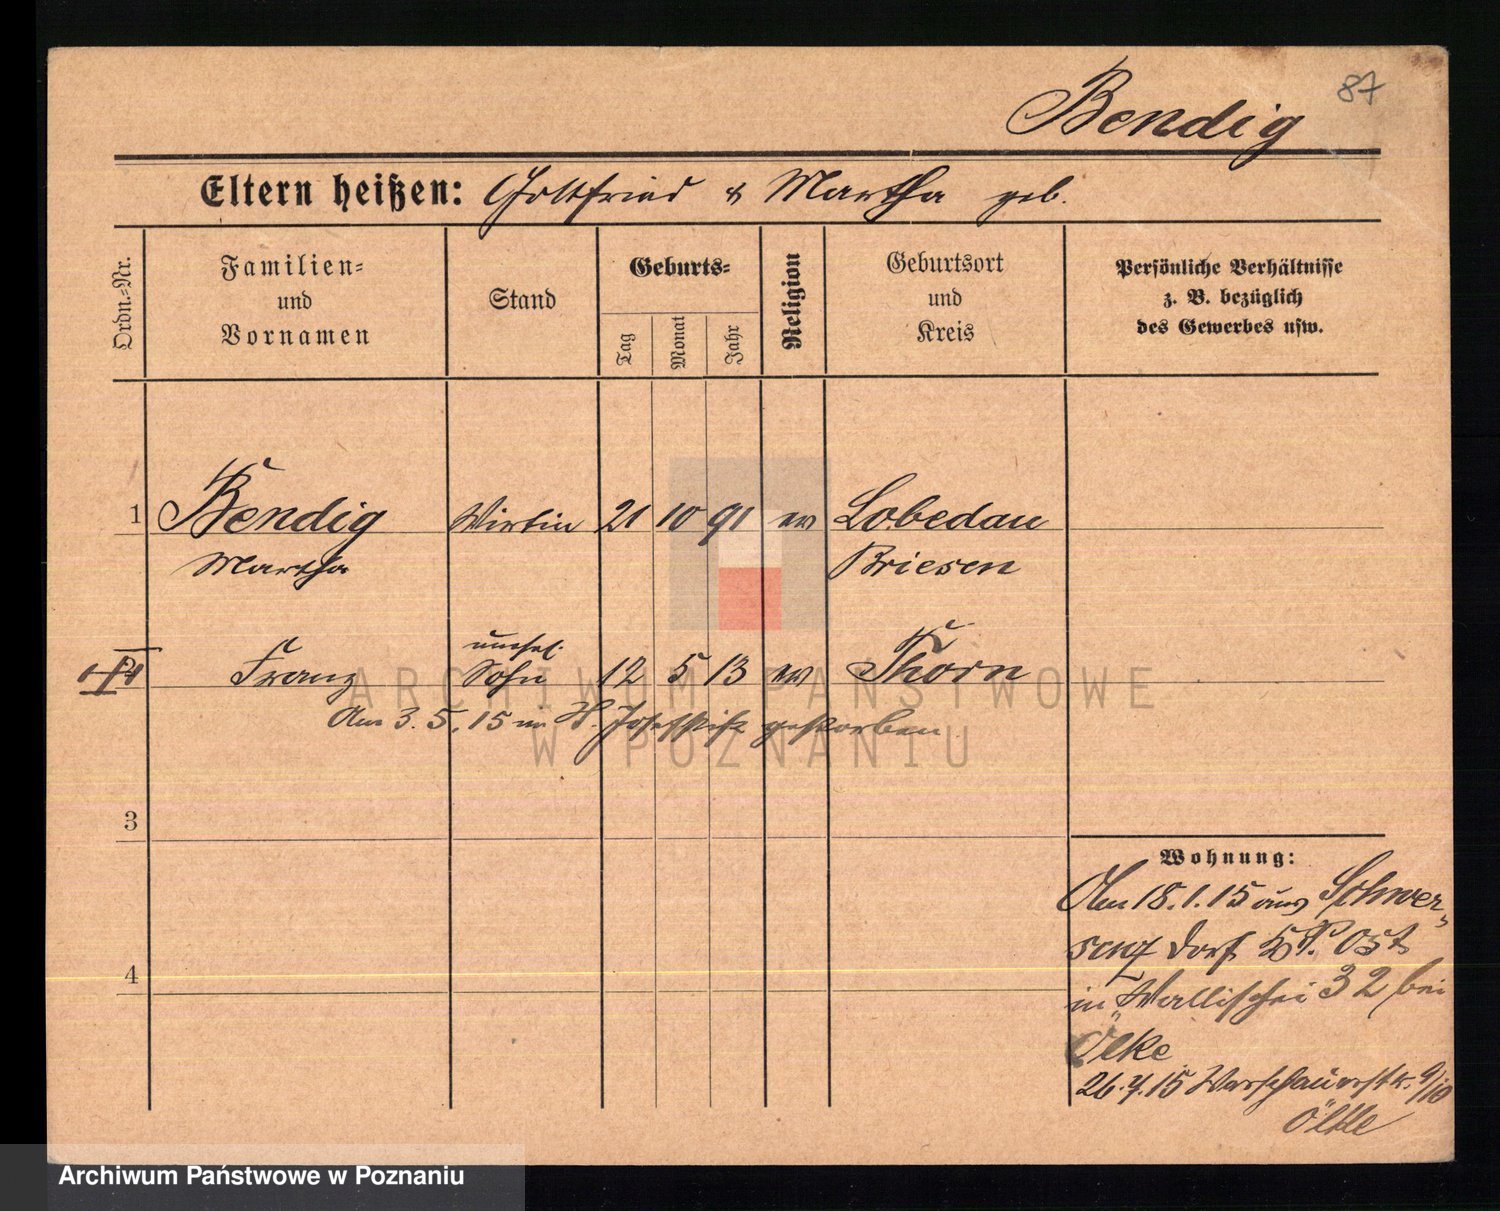 87
Bendig
Eltern heißen: Gottfried & Martha geb.
Ordn.-Nr.
Familien-
und
Vornamen
Stand
Geburts-
Tag
Monat
Jahr
Religion
Geburtsort
und
Kreis
Persönliche Verhältnisse
z. B. bezüglich
des Gewerbes usw.
1 Bendig Wirtin 21 10 91 ev Lobedau
Martha Briesen
unehel.
Franz Sohn 12 5 13 ev Thorn
Am 3. 5. 15 im St. Josephstift gestorben
ARCHIWUM PAŃSTWOWE
W POZNANIU
3
4
Wohnung:
Am 18.1.15 aus Schwer-
senz Dorf Kr. P. Ost
in Wallischei 32 bei
Ölke
26.4.15 Warschauerstr. 9/10
Ölke
Archiwum Państwowe w Poznaniu